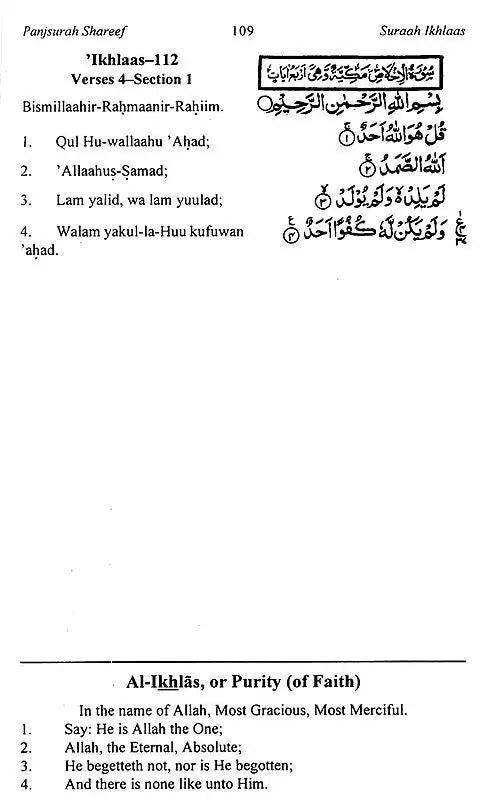 Panjsurah Shareef 109 Suraah Ikhlaas
’Ikhlaas–112
Verses 4–Section 1
سُوْرَةُ الْاِخْلَاصِ مَكِّيَّةٌ وَّهِىَ اَرْبَعُ اٰيَاتٍ
Bismillaahir-Raḥmaanir-Raḥiim.
بِسْمِ اللهِ الرَّحْمٰنِ الرَّحِيْمِ
1. Qul Hu-wallaahu ’Aḥad;
قُلْ هُوَ اللهُ اَحَدٌ ۚ﴿۱﴾
2. ’Allaahuṣ-Ṣamad;
اَللهُ الصَّمَدُ ۚ﴿۲﴾
3. Lam yalid, wa lam yuulad;
لَمْ يَلِدْ ەۙ وَلَمْ يُوْلَدْ ۙ﴿۳﴾
4. Walam yakul-la-Huu kufuwan
وَلَمْ يَكُنْ لَّهٗ كُفُوًا اَحَدٌ ﴿۴﴾
’aḥad.
Al-Ikhlās, or Purity (of Faith)
In the name of Allah, Most Gracious, Most Merciful.
1. Say: He is Allah the One;
2. Allah, the Eternal, Absolute;
3. He begetteth not, nor is He begotten;
4. And there is none like unto Him.